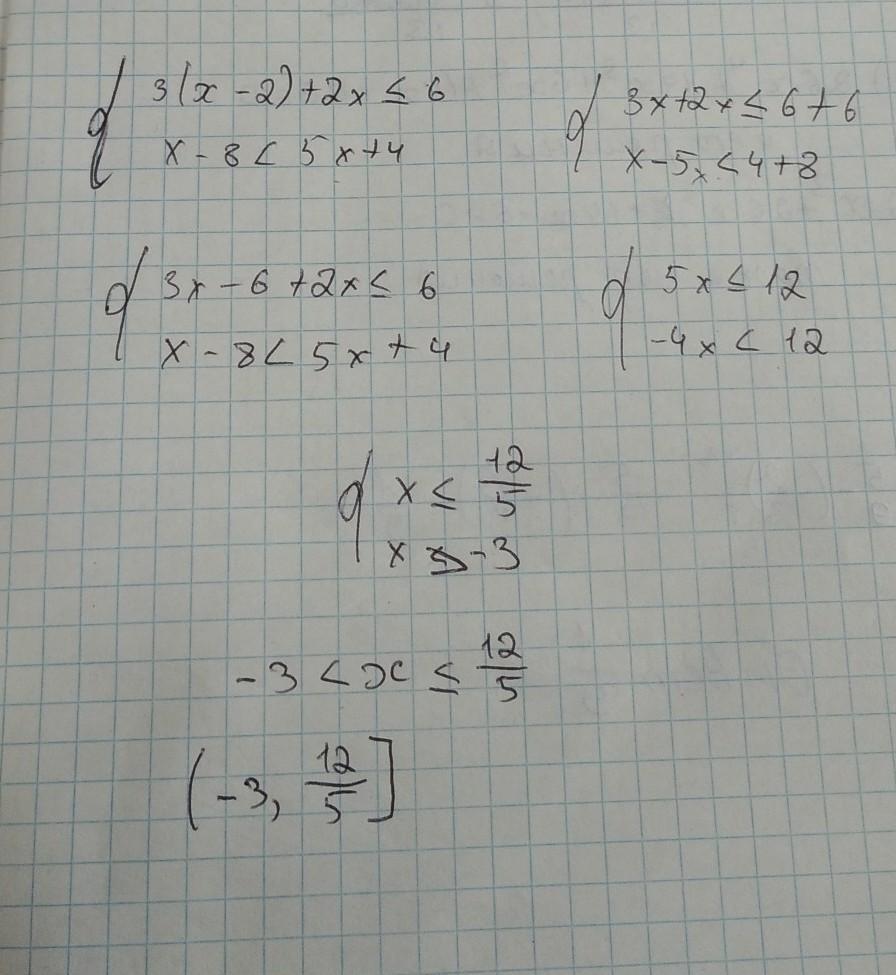 3(x - 2) + 2x ≤ 6
x - 8 < 5x + 4
3x - 6 + 2x ≤ 6
x - 8 < 5x + 4
3x + 2x ≤ 6 + 6
x - 5x < 4 + 8
5x ≤ 12
-4x < 12
x ≤ 12/5
x > -3
-3 < x ≤ 12/5
(-3, 12/5]